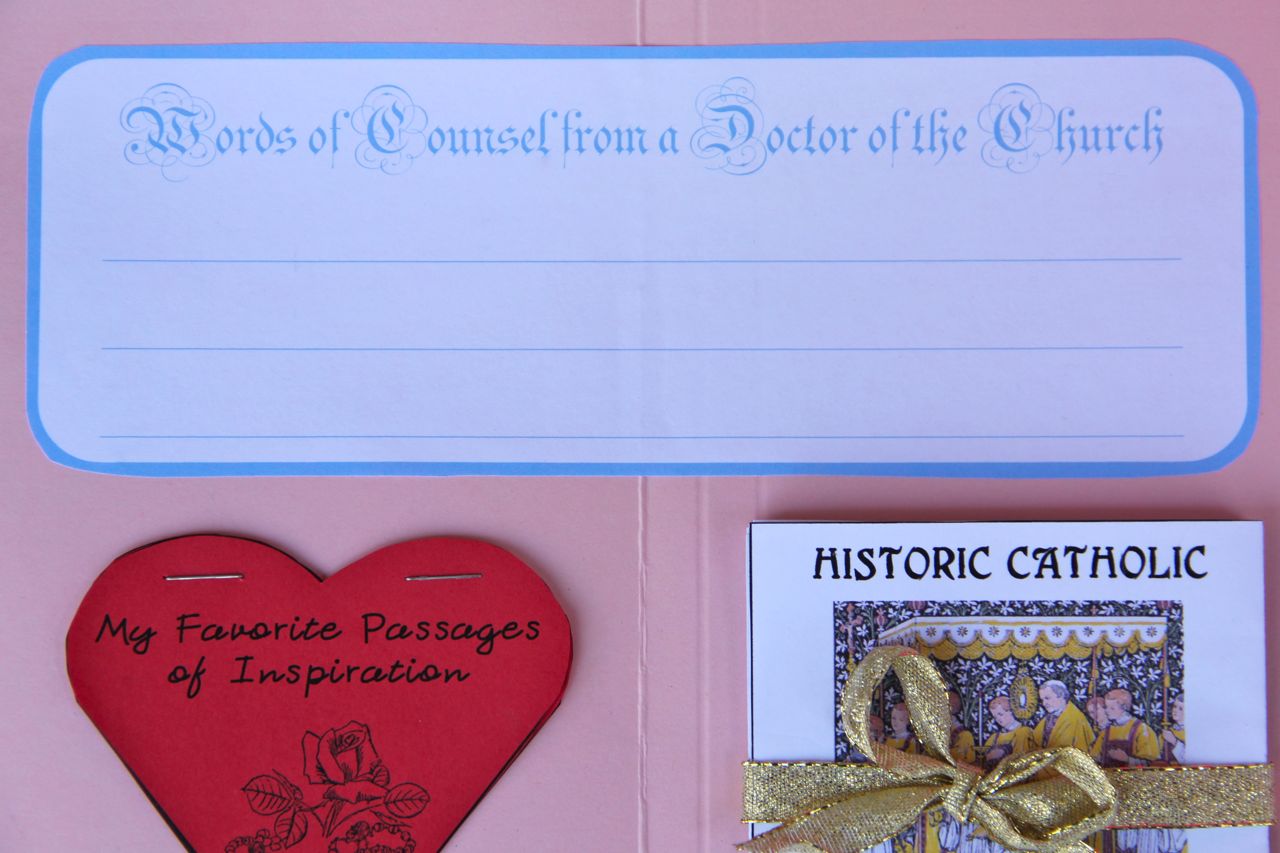 Words of Counsel from a Doctor of the Church
My Favorite Passages
of Inspiration
HISTORIC CATHOLIC